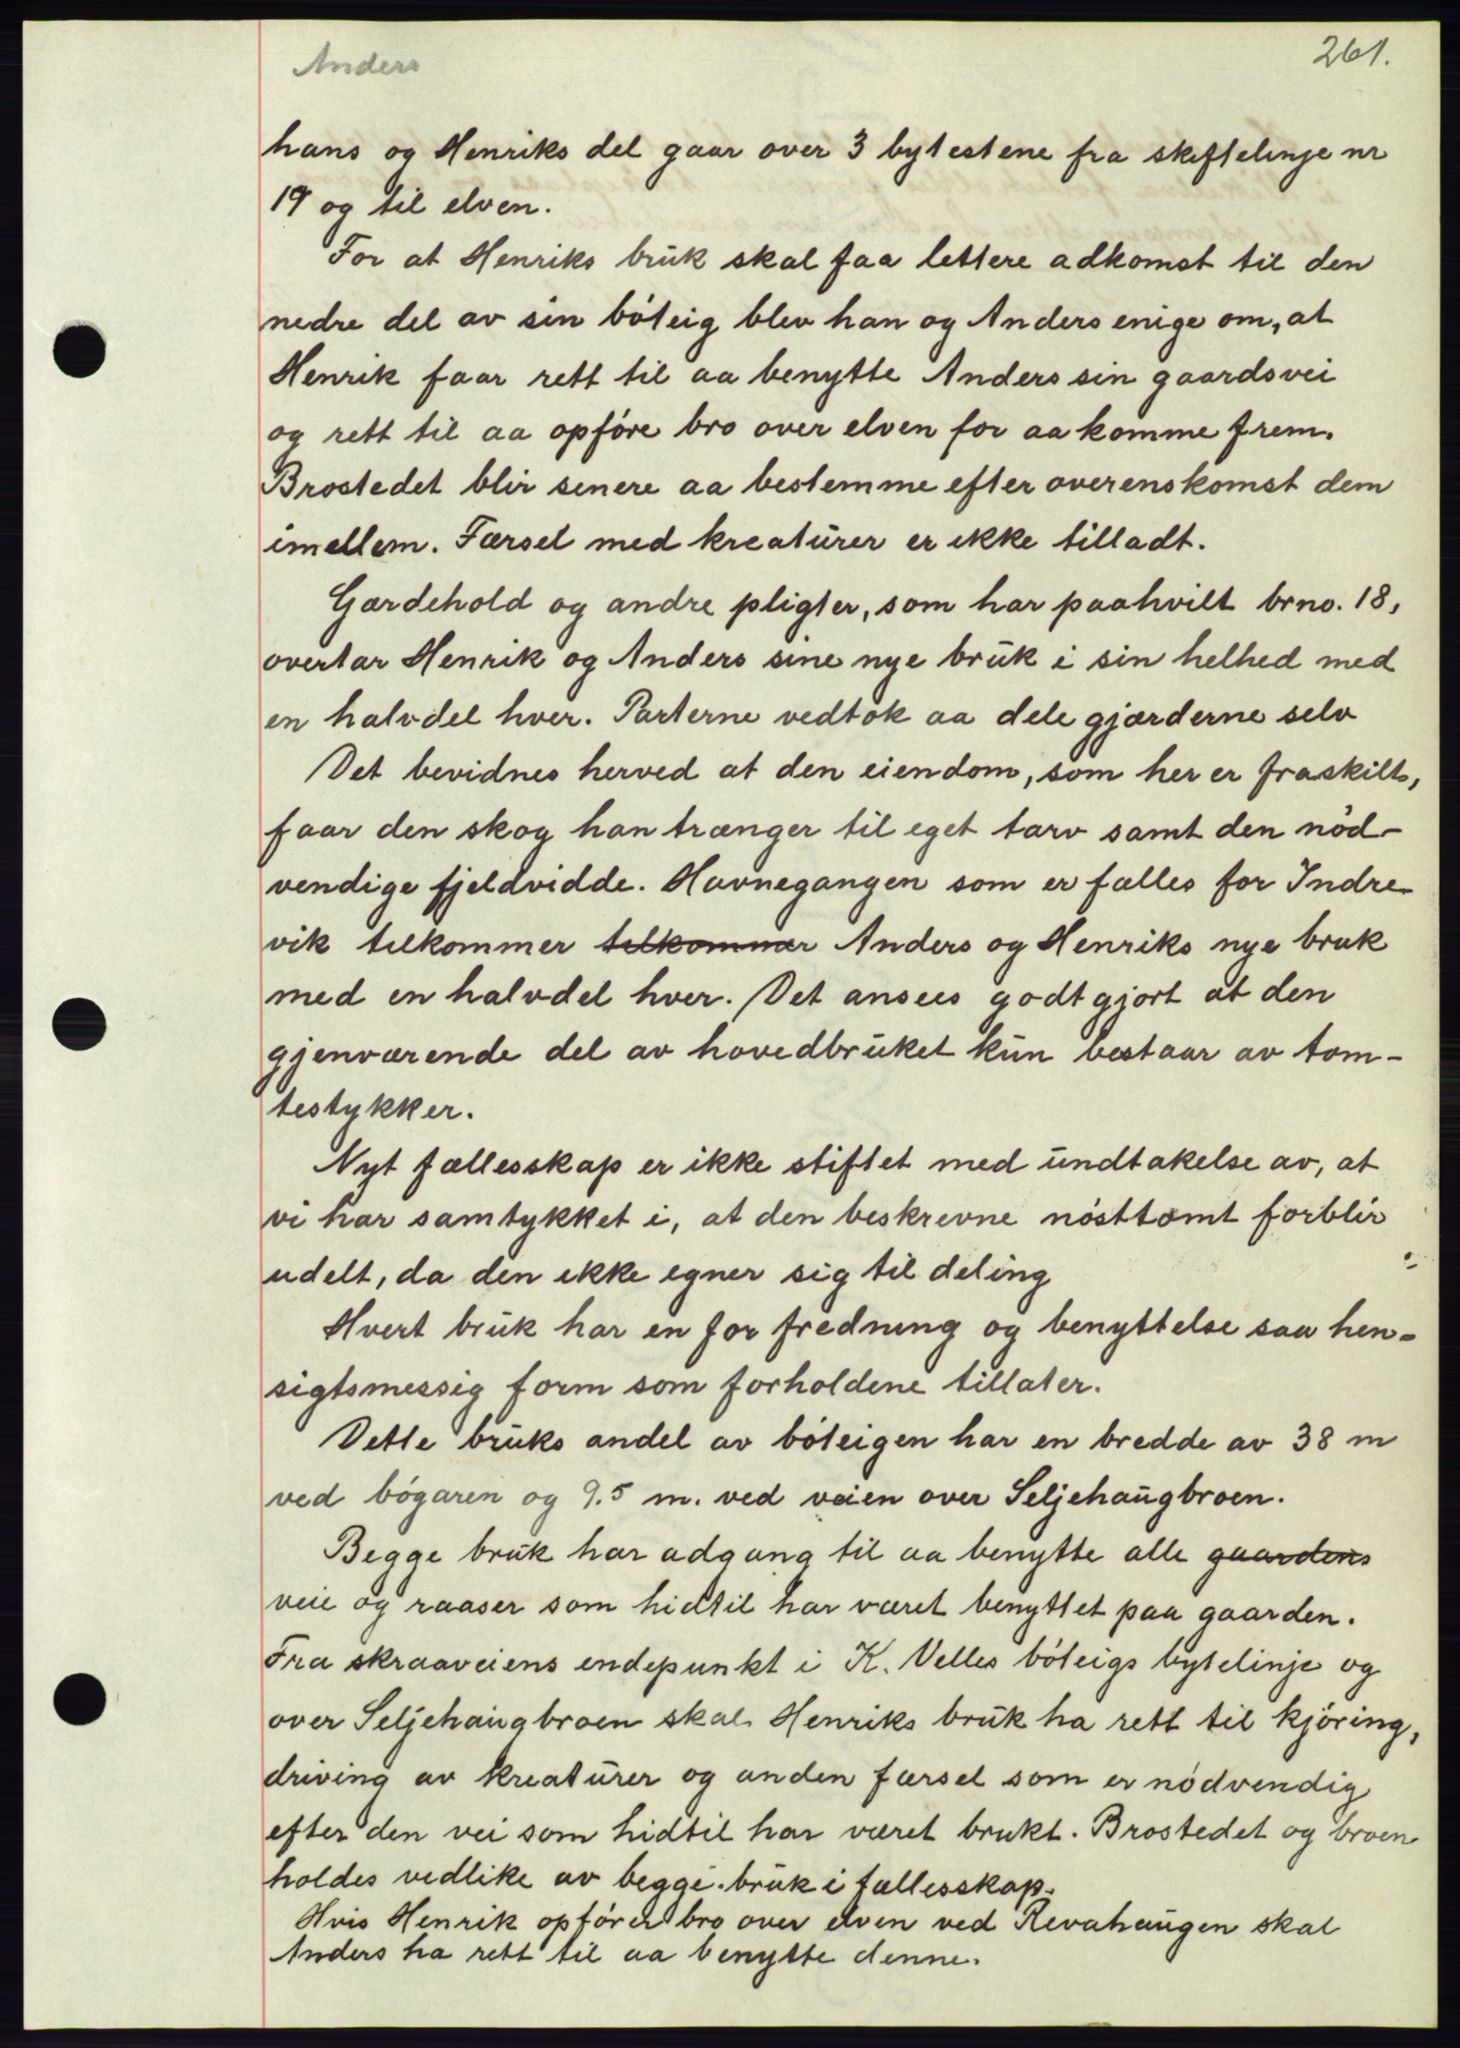 Anders
261.
hans og Henriks del gaar over 3 bytestene fra skiftelinje nr
19 og til elven.
For at Henriks bruk skal faa lettere adkomst til den
nedre del av sin bóteig blev han og Anders enige om, at
Henrik faar rett til aa benytte Anders sin gaardsvei
og rett til aa opfóre bro over elven for aa komme frem.
Brostedet blir senere aa bestemme efter overenskomst dem
imellem. Færsel med kreaturer er ikke tilladt.
Gærdehold og andre pligter, som har paahvilt brno. 18,
overtar Henrik og Anders sine nye bruk i sin helhed med
en halvdel hver. Parterne vedtok aa dele gjærderne selv
Det bevidnes herved at den eiendom, som her er fraskilt,
faar den skog han trænger til eget tarv samt den nód-
vendige fjeldvidde. Havnegangen som er fælles for Indre-
vik tilkommer tilkommer Anders og Henriks nye bruk
med en halvdel hver. Det ansees godtgjort at den
gjenværende del av hovedbruket kun bestaar av tom-
testykker.
Nyt fællesskap er ikke stiftet med undtakelse av, at
vi har samtykket i, at den beskrevne nósttomt forblir
udelt, da den ikke egner sig til deling
Hvert bruk har en for fredning og benyttelse saa hen-
sigtsmessig form som forholdene tillater.
Dette bruks andel av bóteigen har en bredde av 38 m
ved bógaren og 9.5 m. ved veien over Seljehaugbroen.
Begge bruk har adgang til aa benytte alle gaardens
veie og raaser som hidtil har været benyttet paa gaarden.
Fra skraaveiens endepunkt i K. Velles bóteigs bytelinje og
over Seljehaugbroen skal Henriks bruk ha rett til kjóring,
driving av kreaturer og anden færsel som er nódvendig
efter den vei som hidtil har været brukt. Brostedet og broen
holdes vedlike av begge bruk i fællesskap.
Hvis Henrik opfórer bro over elven ved Revahaugen skal
Anders ha rett til aa benytte denne.